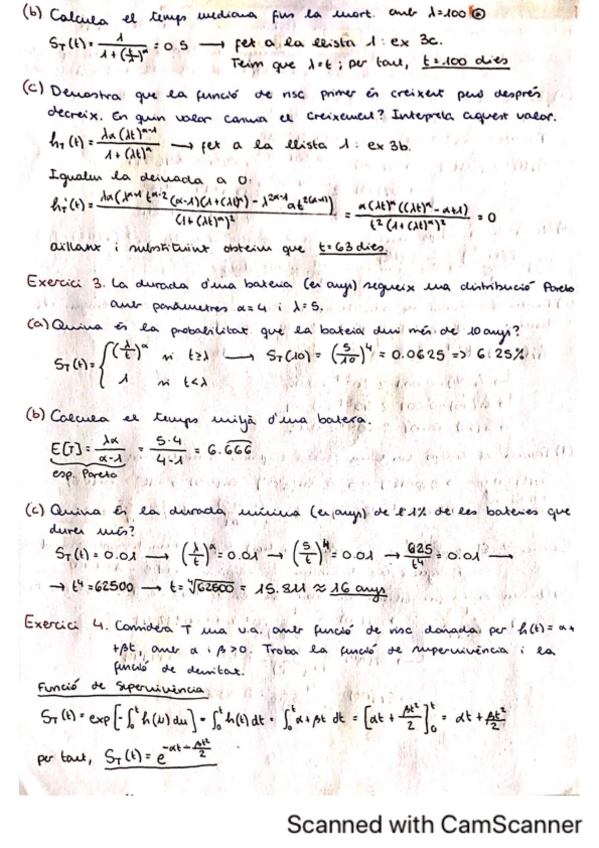 (b) Calcula el temps mediana fins la mort. amb λ=100
S_T(t) = 1/(1+(t/λ)^α) = 0.5 → fet a la llista 1: ex 3c.
Tenim que λ=t; per tant, t=100 dies
(c) Demostra que la funció de risc primer és creixent però després
decreix. En quin valor canvia el creixement? Interpreta aquest valor.
h_T(t) = λα(λt)^(α-1)/(1+(λt)^α) → fet a la llista 1: ex 3b.
Igualem la derivada a 0:
h_T'(t) = λα(λ^(α-1) t^(α-2) (α-1)(1+(λt)^α) - λ^(2α-1) α t^(2(α-1)))/(1+(λt)^α)^2 = α(λt)^α((λt)^α - α+1)/(t^2(1+(λt)^α)^2) = 0
aïllant i substituint obtenim que t=63 dies.
Exercici 3. La durada d'una bateria (en anys) segueix una distribució Pareto
amb paràmetres α=4 i λ=5.
(a) Quina és la probabilitat que la bateria duri més de 10 anys?
S_T(t) = { (λ/t)^α si t≥λ → S_T(10) = (5/10)^4 = 0.0625 => 6.25%
1 si t<λ
(b) Calcula el temps mitjà d'una batera.
E[T] = λα/(α-1) = 5·4/(4-1) = 6.666
esp. Pareto
(c) Quina és la durada mínima (en anys) de l'1% de les bateries que
duren més?
S_T(t) = 0.01 → (λ/t)^α = 0.01 → (5/t)^4 = 0.01 → 625/t^4 = 0.01 →
→ t^4 = 62500 → t = ⁴√62500 = 15.811 ≈ 16 anys
Exercici 4. Considera T una v.a. amb funció de risc donada per h(t) = α+
+βt, amb α i β>0. Troba la funció de supervivència i la
funció de densitat.
Funció de Supervivència
S_T(t) = exp[-∫₀ᵗ h(u) du] = ∫₀ᵗ h(t) dt = ∫₀ᵗ α+βt dt = [αt + βt²/2]₀ᵗ = αt + βt²/2
per tant, S_T(t) = e^(-αt-βt²/2)
Scanned with CamScanner